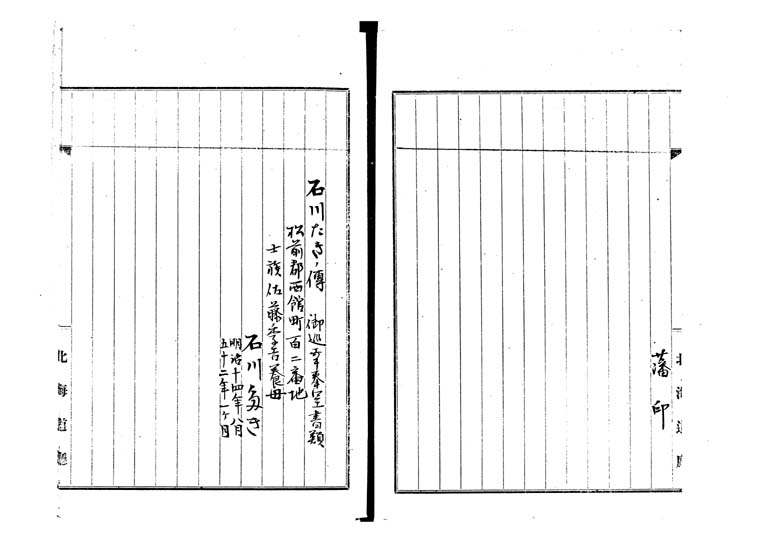 藩印
北海道廳
石川たき傳 御巡幸奉呈書類
松前郡西館町百二番地
士族佐藤季吉養母
石川多き
明治十四年八月
五十二年一ヶ月
北海道廳